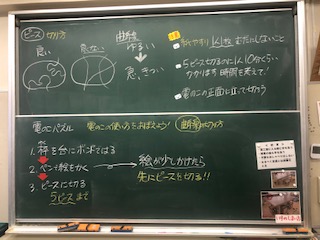 ピース 切り方
良い
良くない
曲線
ゆるい
↓
急、きつい
紙やすり 1人1枚 むだにしないこと
5ピース切るのに1人10分くらい
かかります 時間を考えて!
電のこの正面に立って切ろう
電のこパズル 電のこの使い方をおぼえよう!
曲線の切り方
1. 枠を台にボンドではる
2. ペンで絵をかく → 絵が少しかけたら
先にピースを切る!!
3. ピースに切る
5ピースまで